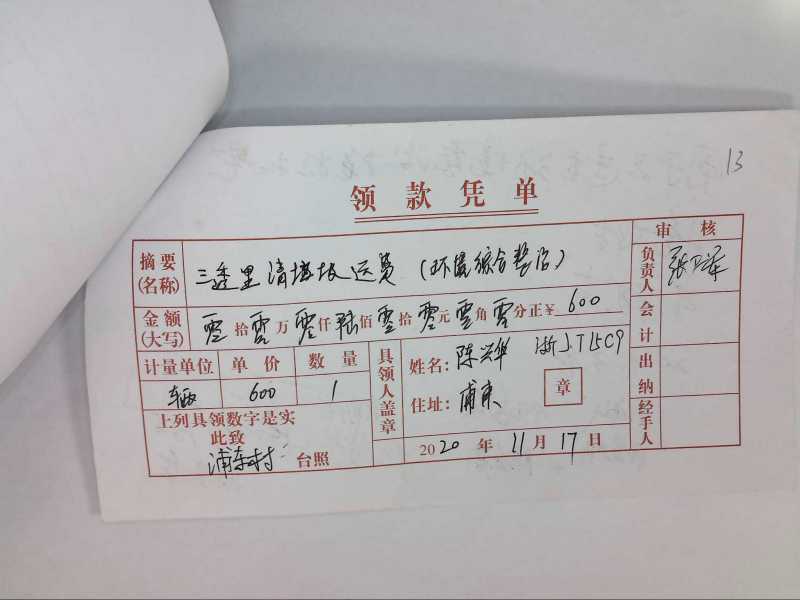 13
领款凭单
审核
摘要(名称) 三连里清垃圾运费(环境综合整治)
负责人 张
金额(大写) 零拾零万零仟陆佰零拾零元零角零分正¥600
会计
计量单位 单价 数量
辆 600 1
具领人盖章
姓名:陈兴华 浙J.T15C9
住址:浦东
章
出纳
上列具领数字是实
此致
浦东村 台照
2020年11月17日
经手人